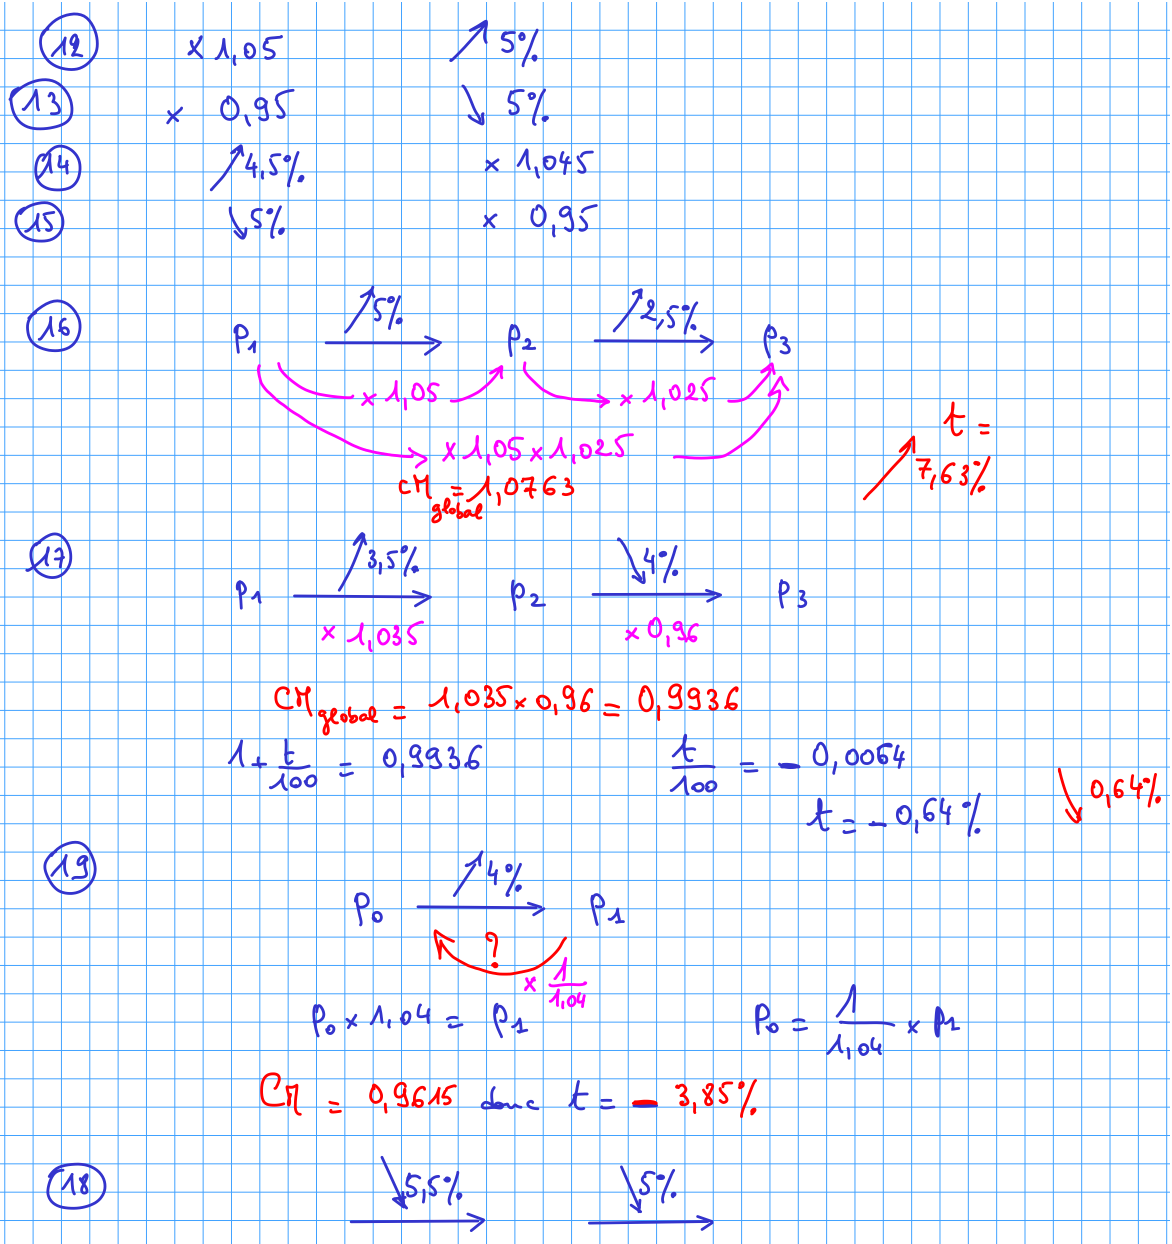 12 × 1,05 ↗ 5%
13 × 0,95 ↘ 5%
14 ↗ 4,5% × 1,045
15 ↘ 5% × 0,95
16 P1 ↗ 5% → P2 ↗ 2,5% → P3
× 1,05 × 1,025
× 1,05 × 1,025
CM global = 1,0763
↗ t = 7,63%
17 P1 ↗ 3,5% → P2 ↘ 4% → P3
× 1,035 × 0,96
CM global = 1,035 × 0,96 = 0,9936
1 + t/100 = 0,9936 t/100 = - 0,0064
t = - 0,64% ↘ 0,64%
19 P0 ↗ 4% → P1
?
× 1/1,04
P0 × 1,04 = P1 P0 = 1/1,04 × P1
CM = 0,9615 donc t = - 3,85%
18 ↘ 5,5% → ↘ 5% →